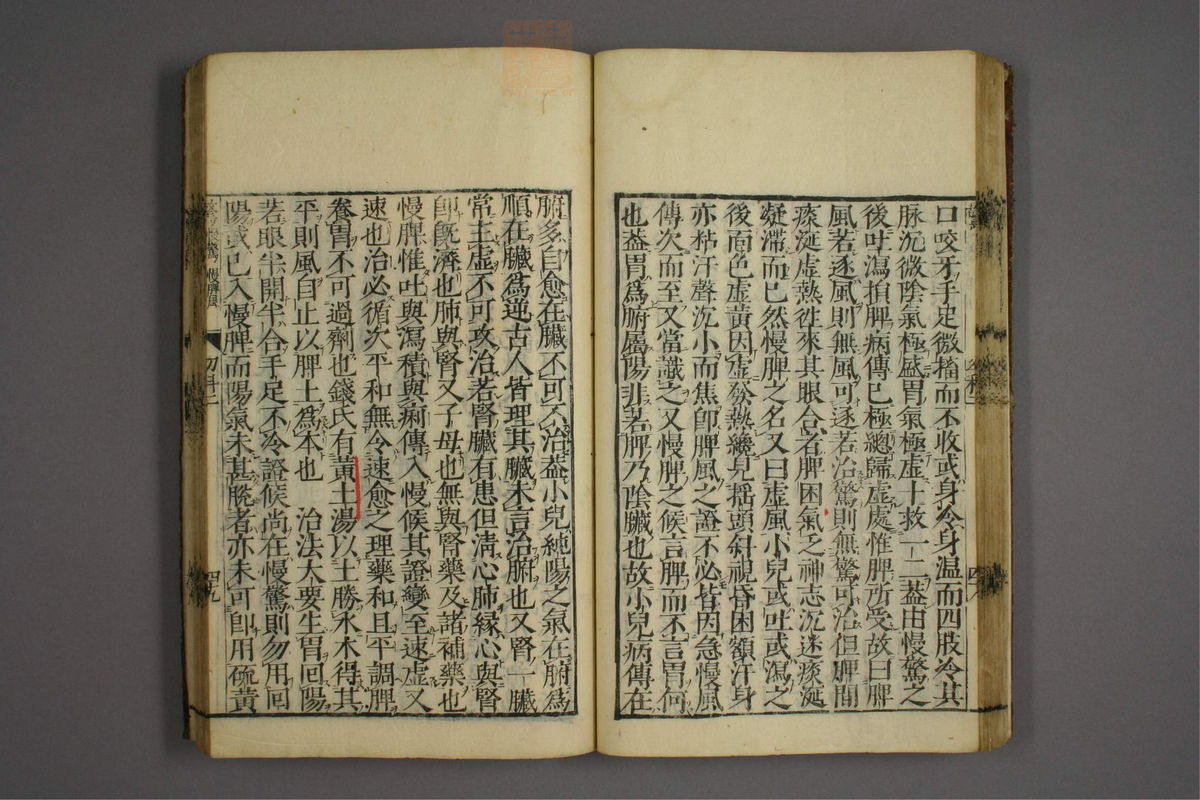 口咬牙手足微搐而不收或身冷身温而四肢冷其
脉沉微陰氣極盛胃氣極虛十救一二蓋由慢驚之
後吐瀉損脾病傳已極總歸虛處惟脾所受故曰脾
風若逐風則無風可逐若治驚則無驚可治但脾間
痰涎虛熱徃來其眼合者脾困氣乏神志沉迷痰涎
凝滯而已然慢脾之名又曰虛風小兒或吐或瀉之
後面色虛黄因虛發熱纔見揺頭斜視昏困額汗身
亦粘汗聲沉小而焦卽脾風之證不必皆因急慢風
傳次而至又當識之又慢脾之候言脾而不言胃何
也蓋胃爲腑屬陽非若脾乃陰臟也故小兒病傳在
腑多自愈在臟不可不治蓋小兒純陽之氣在腑爲
順在臟爲逆古人皆理其臟未言治腑也又腎一臟
常主虛不可攻治若腎臟有患但清心肺緣心與腎
卽旣濟也肺與腎又子母也無與腎藥及諸補藥也
慢脾惟吐與瀉積與痢傳入慢候其證變至速虛又
速也治必循次平和無令速愈之理藥和且平調脾
養胃不可過劑也錢氏有黄土湯以土勝水木得其
平則風自止以脾土爲本也　治法大要生胃回陽
若眼半開半合手足不冷證候尚在慢驚則勿用回
陽或已入慢脾而陽氣未甚脫者亦未可卽用硫黄
慢脾風
四九